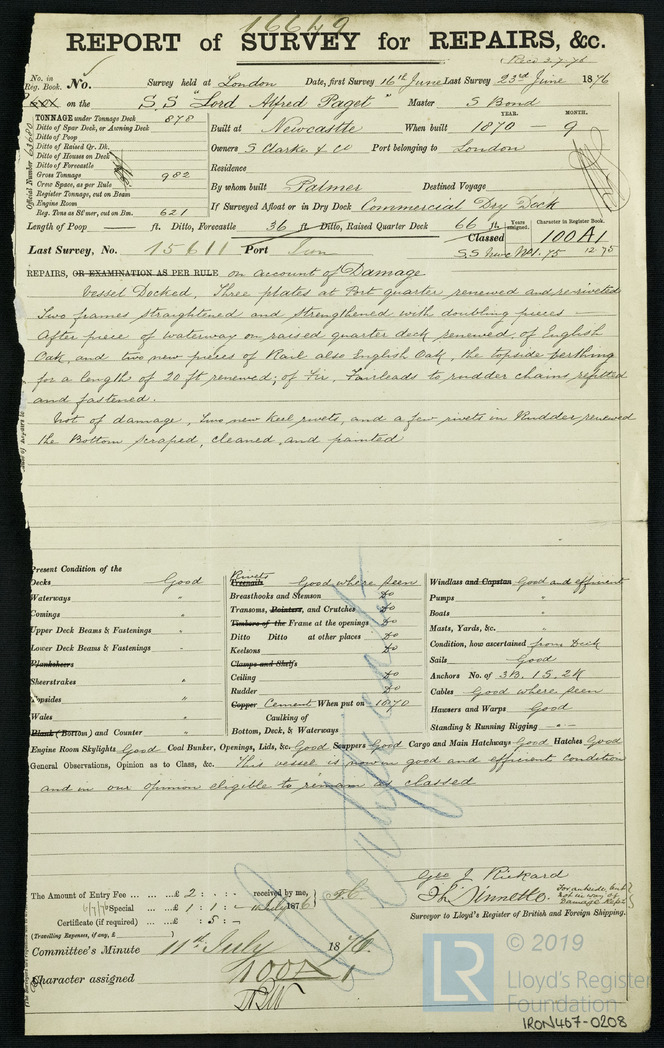 16649
REPORT of SURVEY for REPAIRS, &c.
Recd 3.7.76
No. in Reg. Book. No. Survey held at London Date, first Survey 16th June Last Survey 23rd June 1876
on the S.S "Lord Alfred Paget" Master S Bond
TONNAGE under Tonnage Deck 878
Ditto of Spar Deck, or Awning Deck
Ditto of Poop
Ditto of Raised Qr. Dk.
Ditto of Houses on Deck
Ditto of Forecastle
Gross Tonnage 982
Crew Space, as per Rule
Register Tonnage, cut on Beam
Engine Room
Reg. Tons as St'mer, cut on Bm. 621
Official Number
YEAR. MONTH.
Built at Newcastle When built 1870 9
Owners S Clarke & Co Port belonging to London
Residence
By whom built Palmer Destined Voyage
If Surveyed Afloat or in Dry Dock Commercial Dry Dock
Length of Poop — ft. Ditto, Forecastle 36 ft. Ditto, Raised Quarter Deck 66 ft.
Years assigned. Character in Register Book.
Classed 100A1
Last Survey, No. 15611 Port Iron
S.S Nwc No1.75 12.75
REPAIRS, OR EXAMINATION AS PER RULE on account of Damage
Vessel Docked, Three plates at Port quarter renewed and reriveted
Two frames straightened and strengthened with doubling pieces —
After piece of waterway on raised quarter deck renewed, of English
Oak, and two new pieces of Rail also English Oak, the topside berthing
for a length of 20 ft renewed; of Fir, Fairleads to rudder chains refitted
and fastened.
Not of damage, Two new keel rivets, and a few rivets in Rudder renewed
the Bottom scraped, cleaned, and painted
Present Condition of the
Decks Good
Waterways "
Comings "
Upper Deck Beams & Fastenings "
Lower Deck Beams & Fastenings "
Planksheers
Sheerstrakes "
Topsides "
Wales "
Plank (Bottom) and Counter "
Rivets
Treenails Good where seen
Breasthooks and Stemson Do
Transoms, Pointers, and Crutches Do
Timbers of the Frame at the openings Do
Ditto Ditto at other places Do
Keelsons Do
Clamps and Shelfs
Ceiling Do
Rudder Do
Copper Cement When put on 1870
Caulking of
Bottom, Deck, & Waterways
Windlass and Capstan Good and efficient
Pumps "
Boats "
Masts, Yards, &c. "
Condition, how ascertained from Deck
Sails Good
Anchors No. of 3B. 1S. 2K
Cables Good where seen
Hawsers and Warps Good
Standing & Running Rigging "
Engine Room Skylights Good Coal Bunker, Openings, Lids, &c. Good Scuppers Good Cargo and Main Hatchways Good Hatches Good
General Observations, Opinion as to Class, &c. This vessel is now in good and efficient condition
and in our opinion eligible to remain as classed
Geo J Rickard
For outside, but not in way of Damage Repts
Surveyor to Lloyd's Register of British and Foreign Shipping.
The Amount of Entry Fee ... £ 2 : - : - received by me,
Special ... £ 1 : 1 : - July 1876
Certificate (if required) : 5 : -
(Travelling Expenses, if any, £ )
Committee's Minute 11th July 1876.
Character assigned 100A1
LR
© 2019
Lloyd's Register
Foundation
IRON467-0208